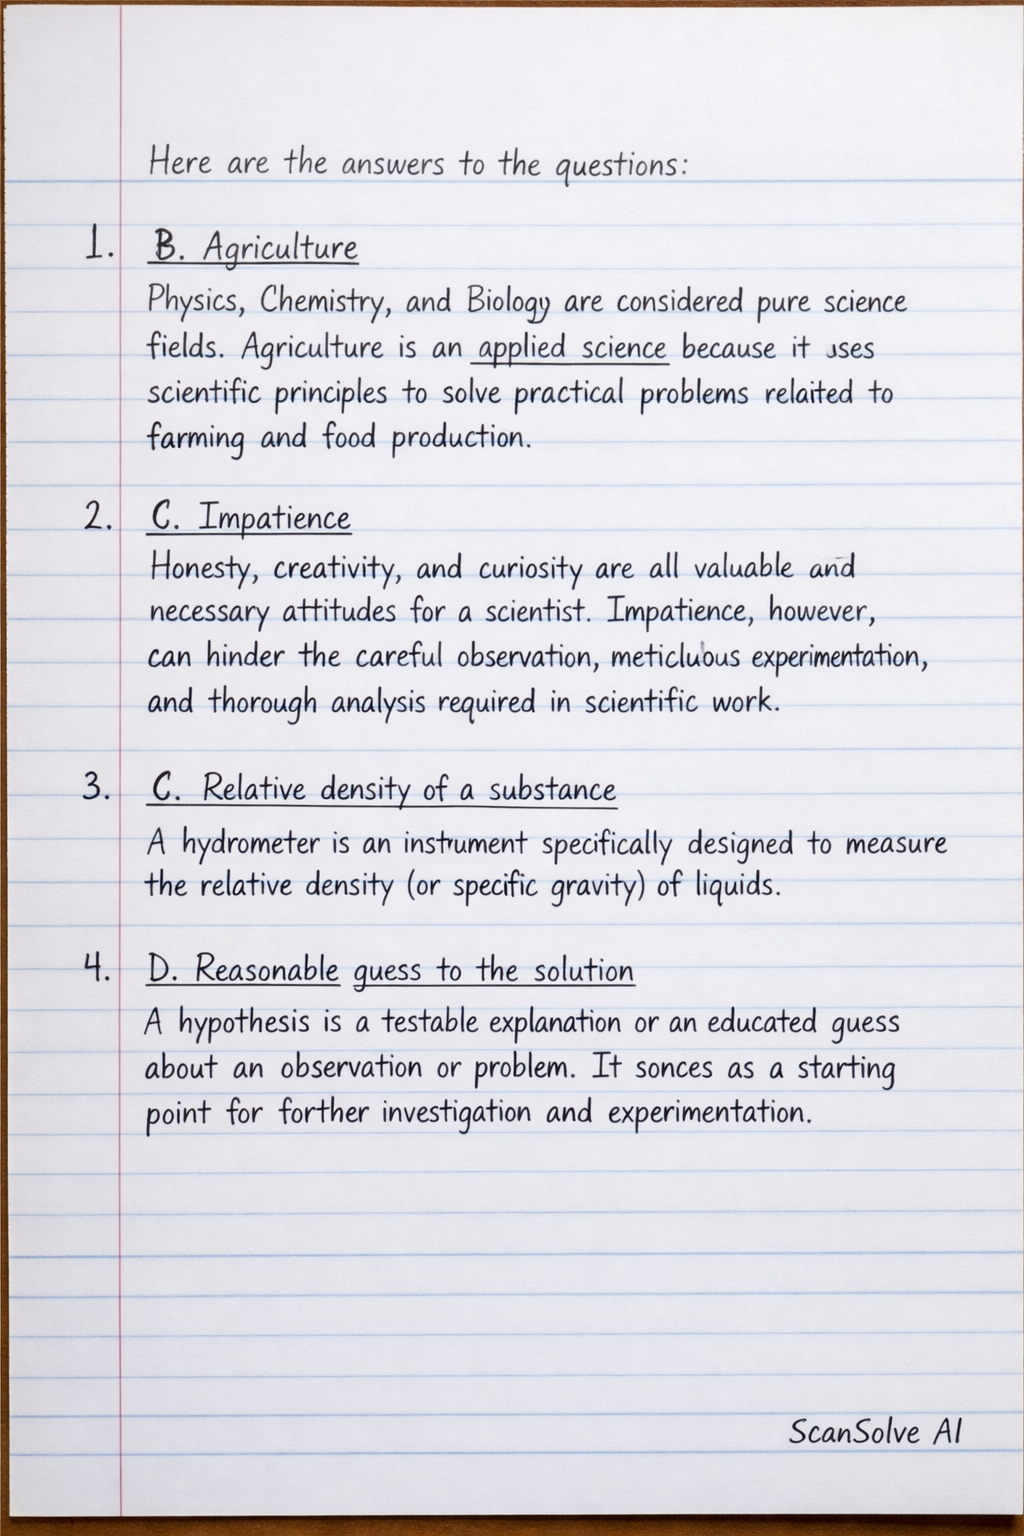 Here are the answers to the questions:
1. B. Agriculture
Physics, Chemistry, and Biology are considered pure science
fields. Agriculture is an applied science because it uses
scientific principles to solve practical problems relaited to
farming and food production.
2. C. Impatience
Honesty, creativity, and curiosity are all valuable and
necessary attitudes for a scientist. Impatience, however,
can hinder the careful observation, meticluous experimentation,
and thorough analysis required in scientific work.
3. C. Relative density of a substance
A hydrometer is an instrument specifically designed to measure
the relative density (or specific gravity) of liquids.
4. D. Reasonable guess to the solution
A hypothesis is a testable explanation or an educated guess
about an observation or problem. It sonces as a starting
point for forther investigation and experimentation.
ScanSolve AI